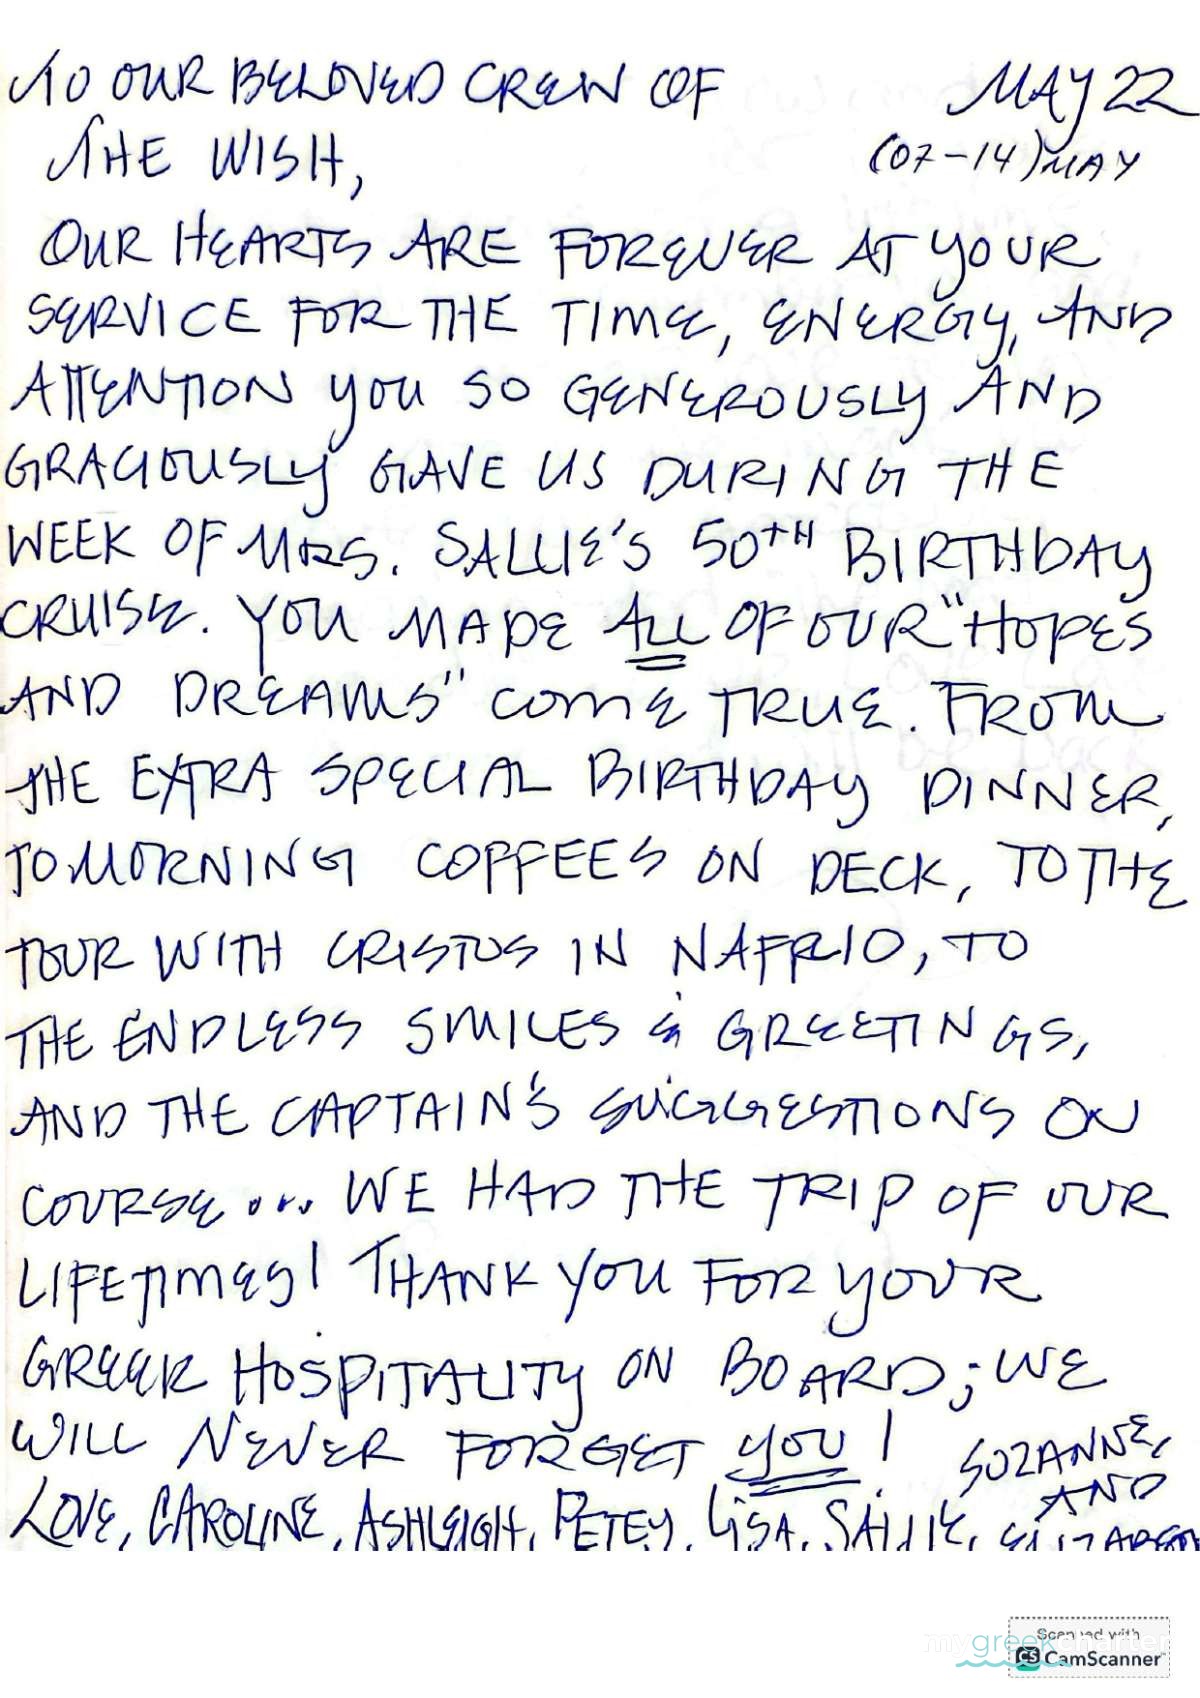 TO OUR BELOVED CREW OF MAY 22
THE WISH, (07-14) MAY
OUR HEARTS ARE FOREVER AT YOUR
SERVICE FOR THE TIME, ENERGY, AND
ATTENTION YOU SO GENEROUSLY AND
GRACIOUSLY GAVE US DURING THE
WEEK OF MRS. SALLIE'S 50TH BIRTHDAY
CRUISE. YOU MADE ALL OF OUR "HOPES
AND DREAMS" COME TRUE. FROM
THE EXTRA SPECIAL BIRTHDAY DINNER,
TO MORNING COFFEES ON DECK, TO THE
TOUR WITH CRISTOS IN NAFRIO, TO
THE ENDLESS SMILES & GREETINGS,
AND THE CAPTAIN'S SUGGESTIONS ON
COURSE... WE HAD THE TRIP OF OUR
LIFETIMES! THANK YOU FOR YOUR
GREEK HOSPITALITY ON BOARD; WE
WILL NEVER FORGET YOU! SUZANNE,
AND
LOVE, CAROLINE, ASHLEIGH, PETEY, LISA, SALLIE, ELIZABETH
Scanned with
mygreekcharter
CS CamScanner